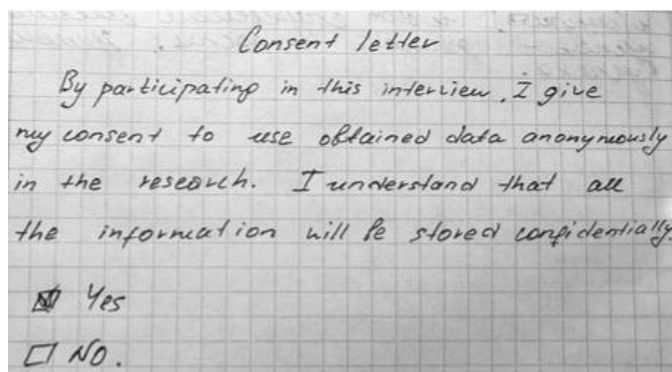 Consent letter
By participating in this interview, I give
my consent to use obtained data anonymously
in the research. I understand that all
the information will be stored confidentially.
Yes
NO.